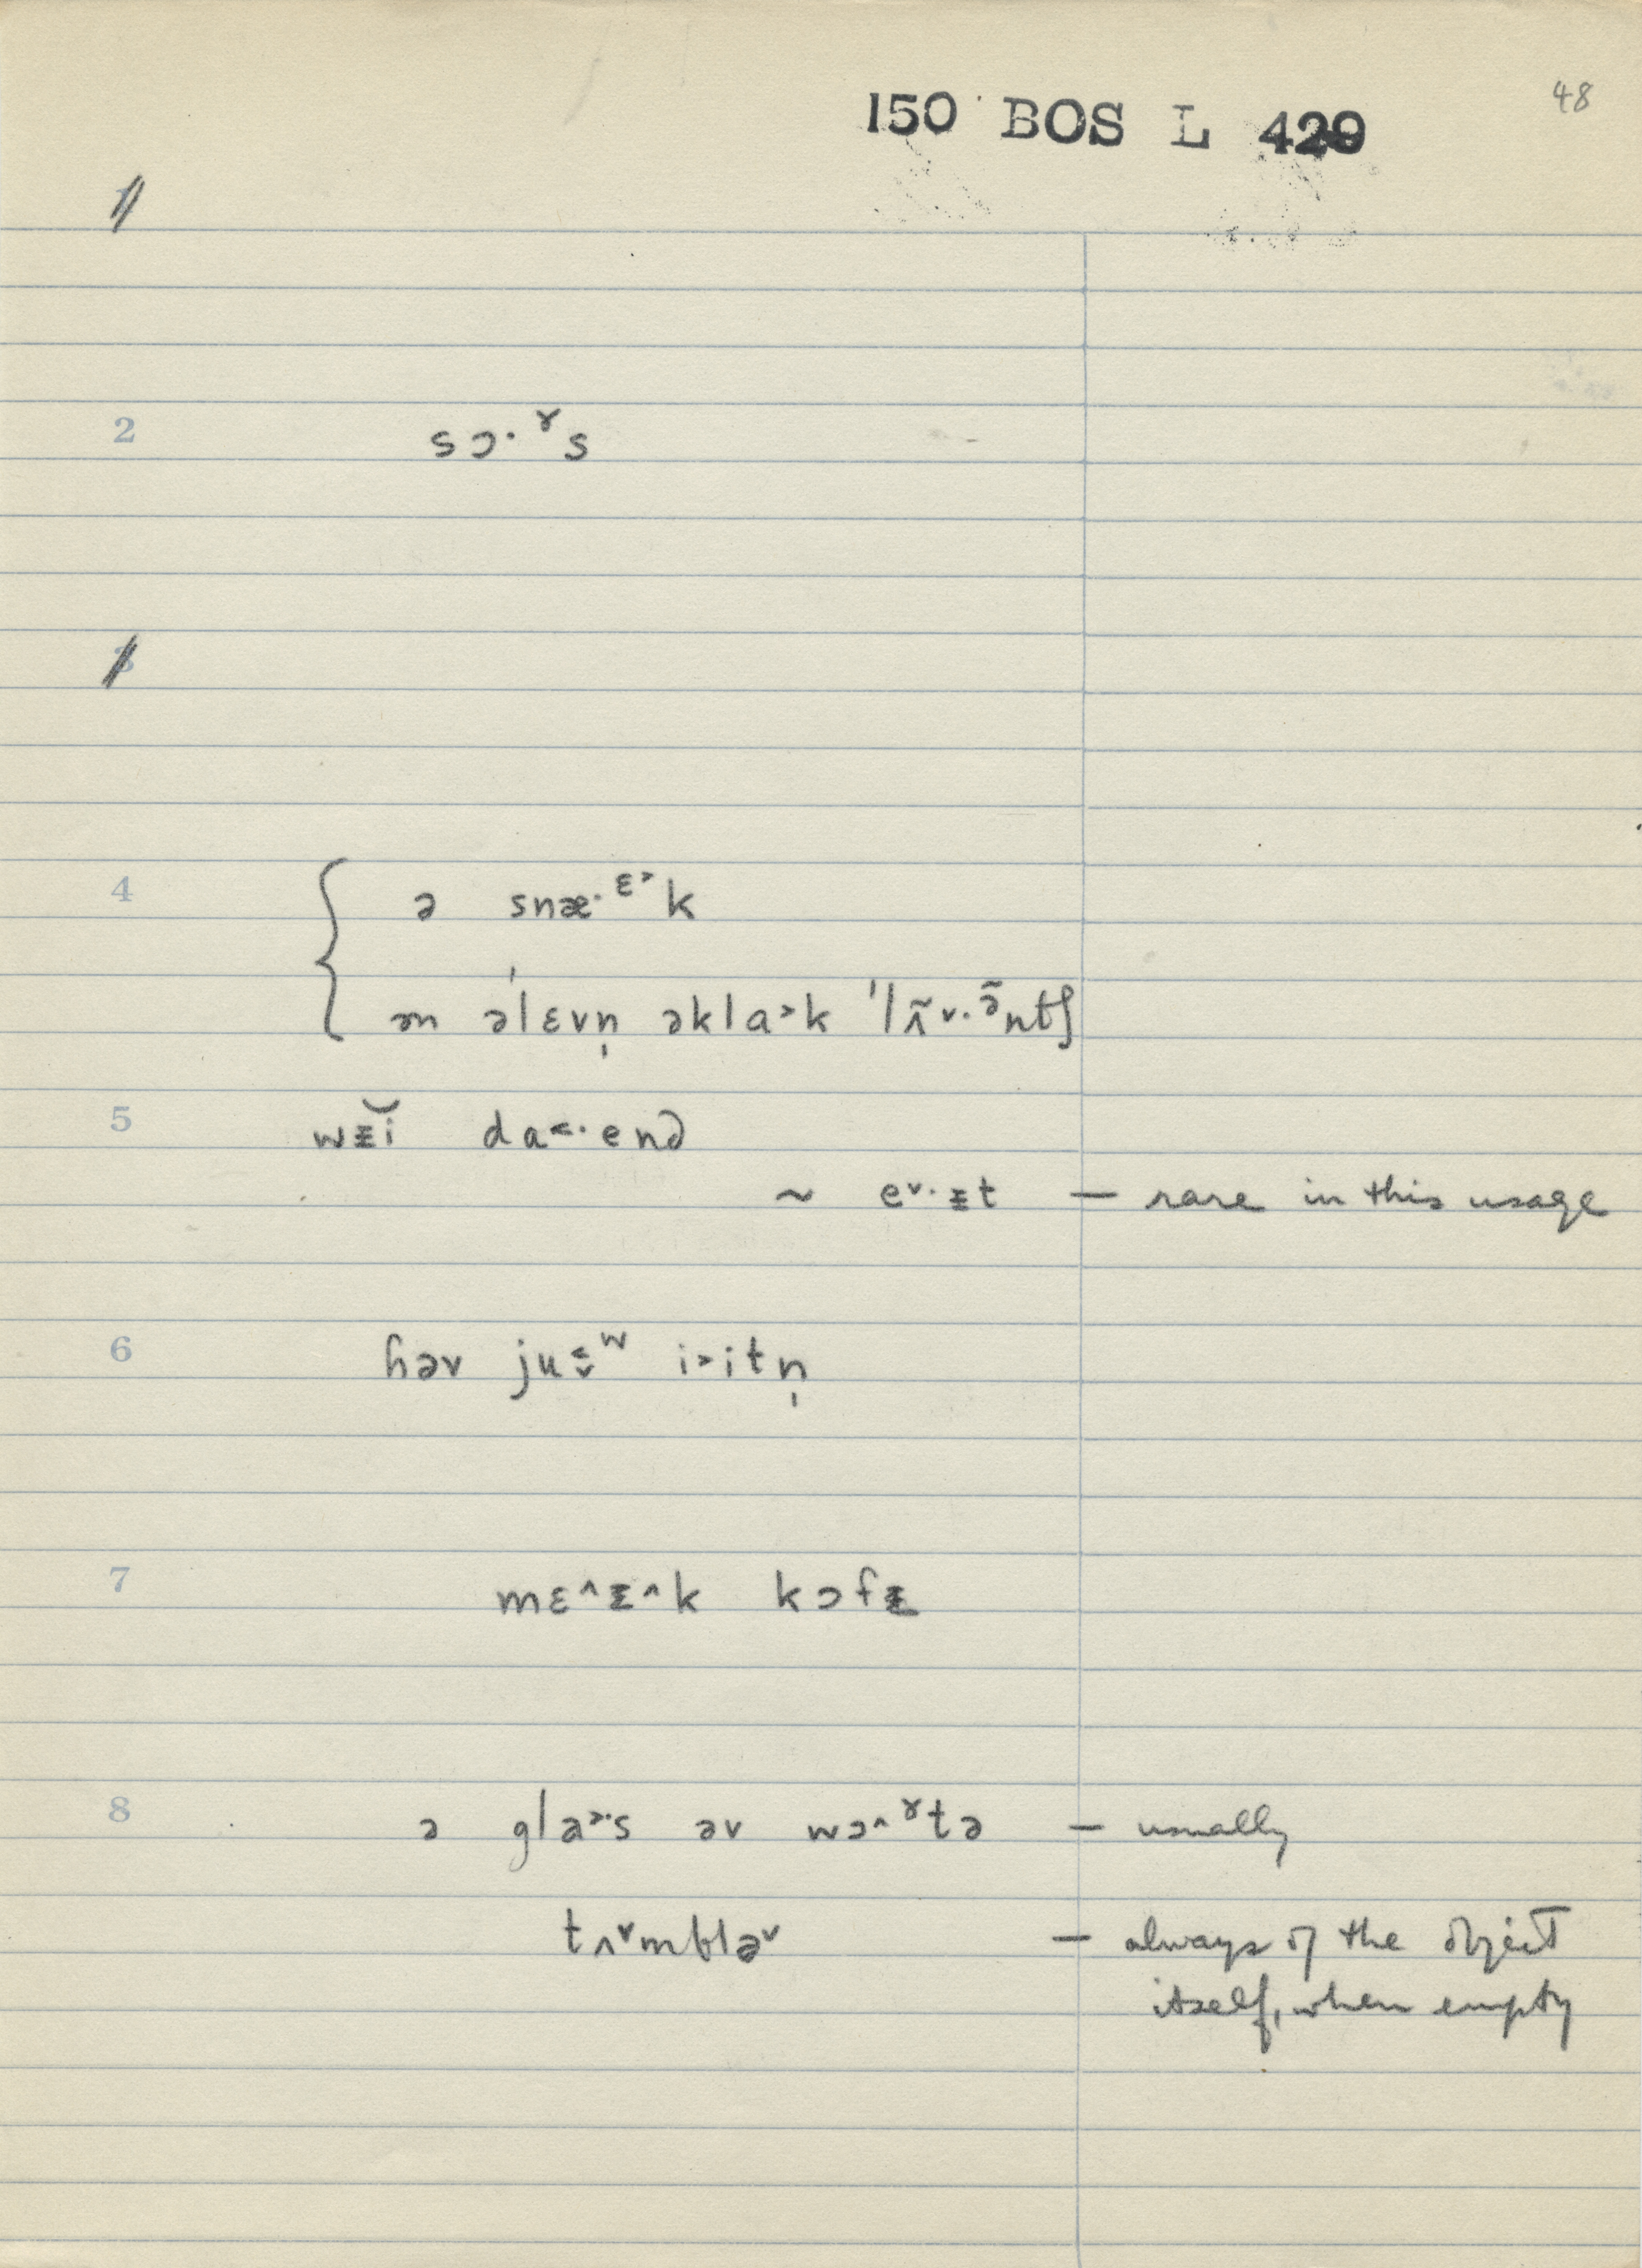 48
150 BOS L 420
1
2 sɔ·ɤs
3
4 ə snæ·ɛ˃k
ən əˈlɛvn̩ əkla˃k ˈlʌ̃˅·ə̃ntʃ
5 wᵻ̆i da˂·enə
~ e˅·ᵻt — rare in this usage
6 həv ju˂˅ʷ i˃itn̩
7 mɛ˄ᵻ˄k kɔfᵻ
8 ə gla˃·s əv wɔ˄ɤtə — usually
tʌ˅mblə˅ — always of the object
itself, when empty